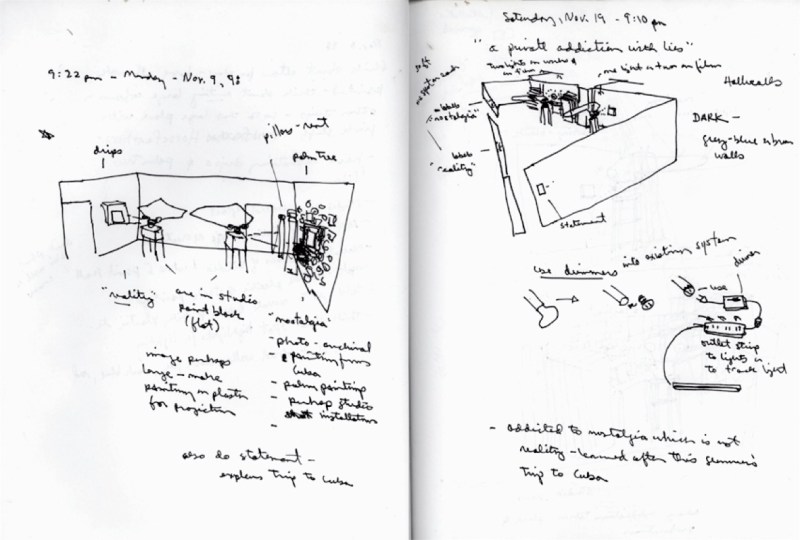 9:22 pm - Monday - Nov. 9, 98
drips
pillow - rent
palm tree
"reality"
are in studio
paint black
(flat)
image perhaps
large - make
painting in plaster
for projection
"nostalgia"
- photo - archival
- painting from
Cuba
- palm painting
- perhaps studio
installation
-
also do statement -
explains trip to Cuba
Saturday, Nov. 19 - 9:10 pm
"a private addiction with lies"
two lights on
one light on film
label
"nostalgia"
label
"reality"
statement
Hallwalls
DARK -
grey-blue
walls
use dimmers into existing system
dimmer
use
outlet strip
to lights in
to track light
- addicted to nostalgia which is not
reality - learned after this summer's
trip to Cuba